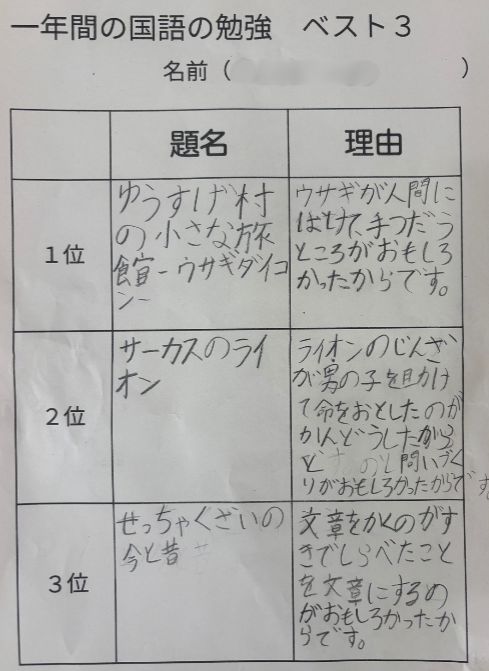 一年間の国語の勉強　ベスト３
名前（　　　　　　）
題名
理由
１位
ゆうすげ村
の小さな旅
館-ウサギダイコ
ン-
ウサギが人間に
ばけて、手つだう
ところがおもしろ
かったからです。
２位
サーカスのライ
オン
ライオンのじんざ
が男の子を助け
て命をおとしたのが
かんどうしたから
と のと問いづく
りがおもしろかったからです
３位
せっちゃくざいの
今と昔
文章をかくのがす
きでしらべたこと
を文章にするの
がおもしろかったか
らです。